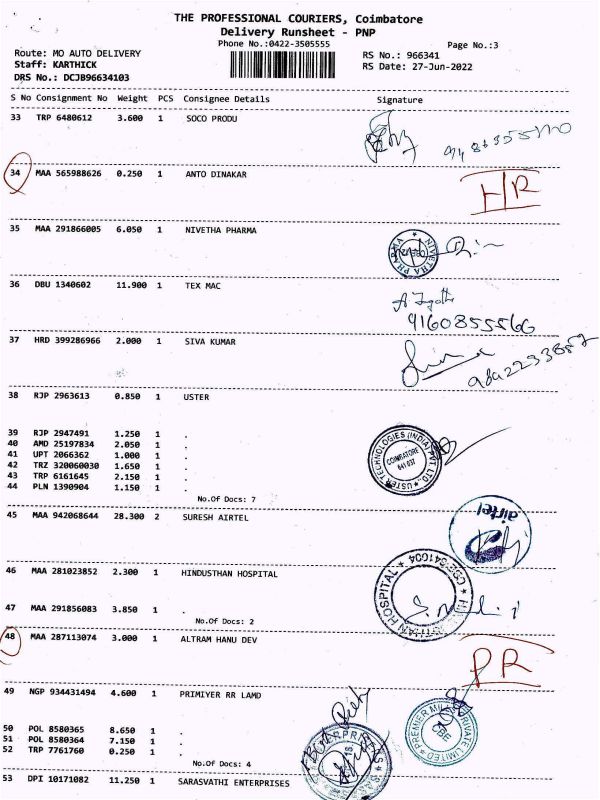 THE PROFESSIONAL COURIERS, Coimbatore
Delivery Runsheet - PNP
Phone No.:0422-3505555
Page No.:3
Route: MO AUTO DELIVERY
RS No.: 966341
Staff: KARTHICK
RS Date: 27-Jun-2022
DRS No.: DCJB96634103
S No Consignment No Weight PCS Consignee Details Signature
33 TRP 6480612 3.600 1 SOCO PRODU
34 MAA 565988626 0.250 1 ANTO DINAKAR
HR
35 MAA 291866005 6.050 1 NIVETHA PHARMA
NIVETHA PHARMA
36 DBU 1340602 11.900 1 TEX MAC
9160855566
37 HRD 399286966 2.000 1 SIVA KUMAR
38 RJP 2963613 0.850 1 USTER
39 RJP 2947491 1.250 1 .
40 AMD 25197834 2.050 1 .
41 UPT 2066362 1.000 1 .
42 TRZ 320060030 1.650 1 .
43 TRP 6161645 2.150 1 .
44 PLN 1390904 1.150 1 .
USTER TECHNOLOGIES (INDIA) PVT. LTD.
COIMBATORE
641 037
No.Of Docs: 7
45 MAA 942068644 28.300 2 SURESH AIRTEL
airtel
46 MAA 281023852 2.300 1 HINDUSTHAN HOSPITAL
HOSPITAL
CBE-641004
47 MAA 291856083 3.850 1 .
No.Of Docs: 2
48 MAA 287113074 3.000 1 ALTRAM HANU DEV
PR
49 NGP 934431494 4.600 1 PRIMIYER RR LAMD
PREMIER MILL PRIVATE LIMITED
CBE
50 POL 8580365 8.650 1 .
51 POL 8580364 7.150 1 .
52 TRP 7761760 0.250 1 .
No.Of Docs: 4
53 DPI 10171082 11.250 1 SARASVATHI ENTERPRISES